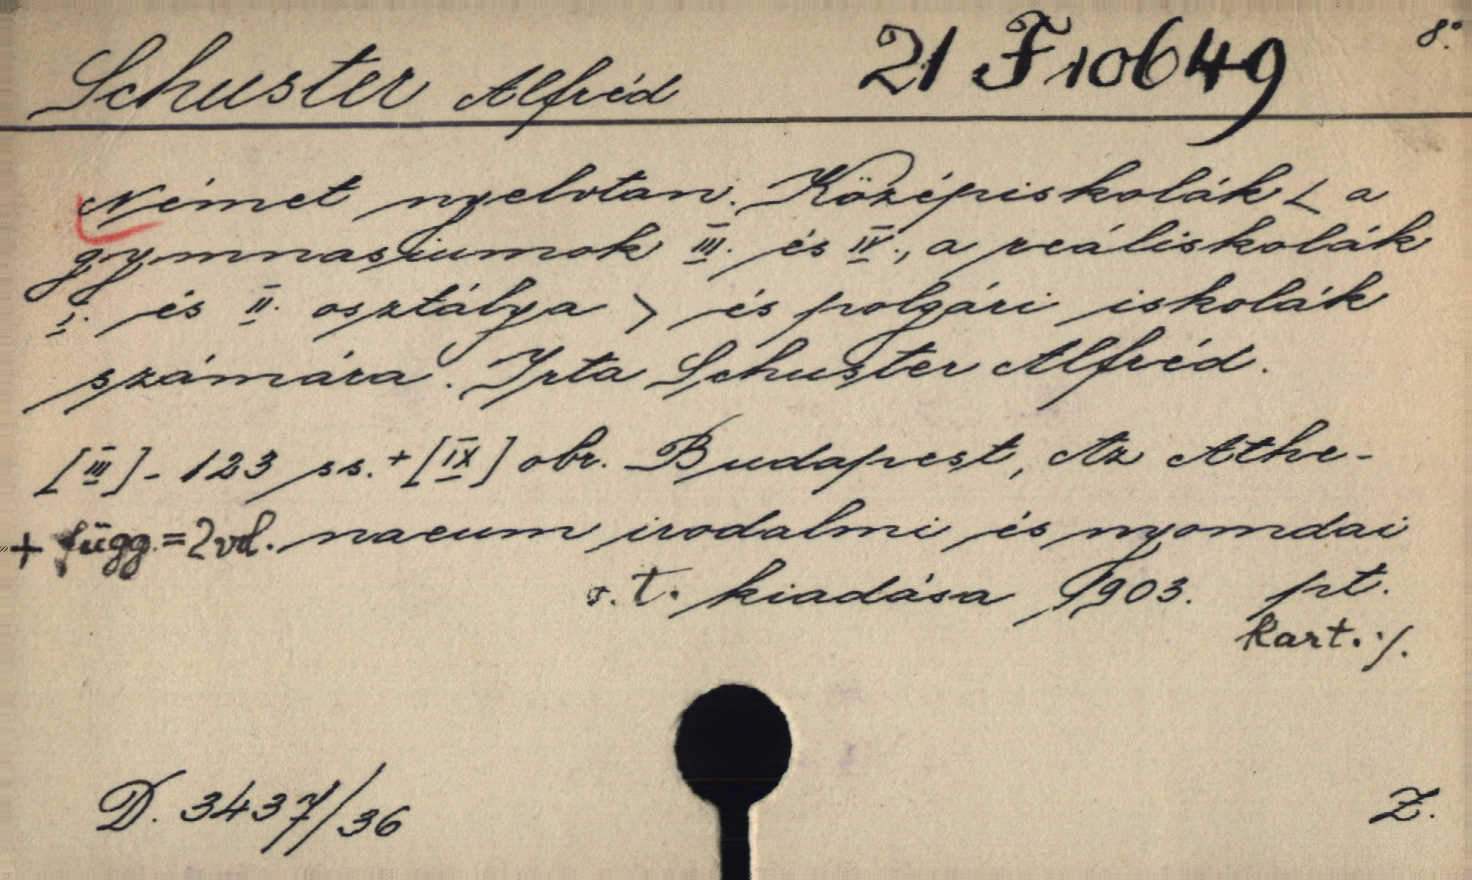 Schuster Alfréd 21 F 10649 8°.
Német nyelvtan. Középiskolák < a
gymnasiumok III. és IV., a reáliskolák
I. és II. osztálya > és polgári iskolák
számára. Irta Schuster Alfréd.
[III] - 123 ss. + [IX] obr. Budapest, Az Athe-
+ függ. = 2 vd. naeum irodalmi és nyomdai
r. t. kiadása 1903. pt.
kart. ·/.
D. 3437/36 Z.